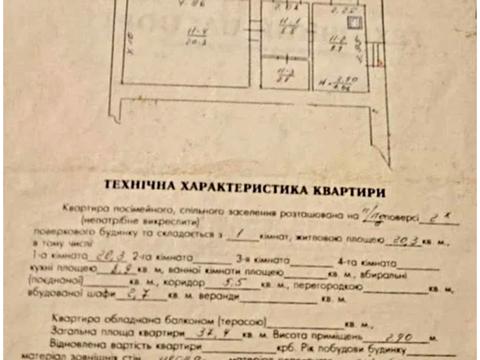 11-4
20.3
11-1
11-2
11-3
ТЕХНІЧНА ХАРАКТЕРИСТИКА КВАРТИРИ
Квартира посімейного, спільного заселення розташована на поверсі 2 х
(непотрібне викреслити)
поверхового будинку та складається з 1 кімнат, житловою площею 20,3 кв. м,
в тому числі
1-а кімната 20,3 2-га кімната 3-я кімната 4-та кімната
кухні площею кв. м, ванної кімнати площею кв. м, вбиральні
(поєднаної) кв. м, коридор 5,5 кв. м, перегородкою кв. м,
вбудованої шафи 2,7 кв. м, веранди кв. м,
Квартира обладнана балконом (терасою) кв. м,
Загальна площа квартири 37,4 кв. м. Висота приміщень 290 м.
Відновлена вартість квартири крб. Рік побудови будинку
матеріал зовнішніх стін